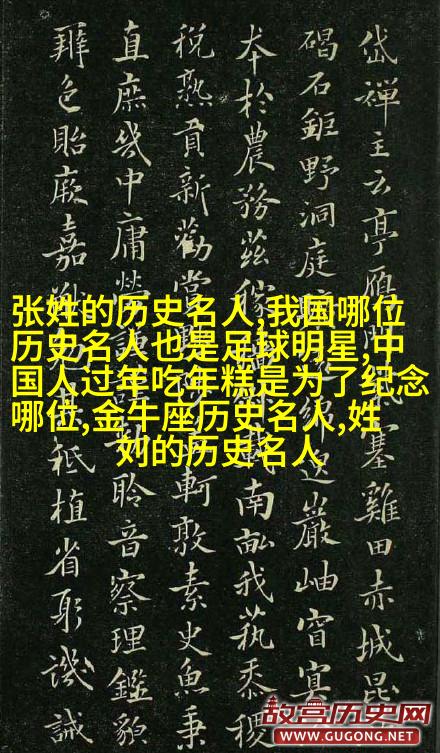 岱禪主云亭雁塞雞田赤城昆
碣石鉅野洞庭邈巖岫窅冥
本於農務茲稼載南畝我藝黍稷
稅熟貢新勸賞軻敦素史魚秉
直庶幾中庸勞謙聆音察理鑑貌
辨色貽厥嘉祗植省躬譏誡
张姓的历史名人,我国哪位
历史名人也是足球明星,中
国人过年吃年糕是为了纪念
哪位,金牛座历史名人,姓
刘的历史名人
故宫历史网
WWW.GUGONG.NET